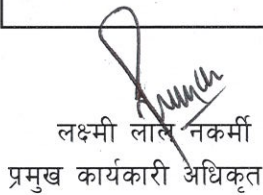 लक्ष्मी लाल नकर्मी
प्रमुख कार्यकारी अधिकृत